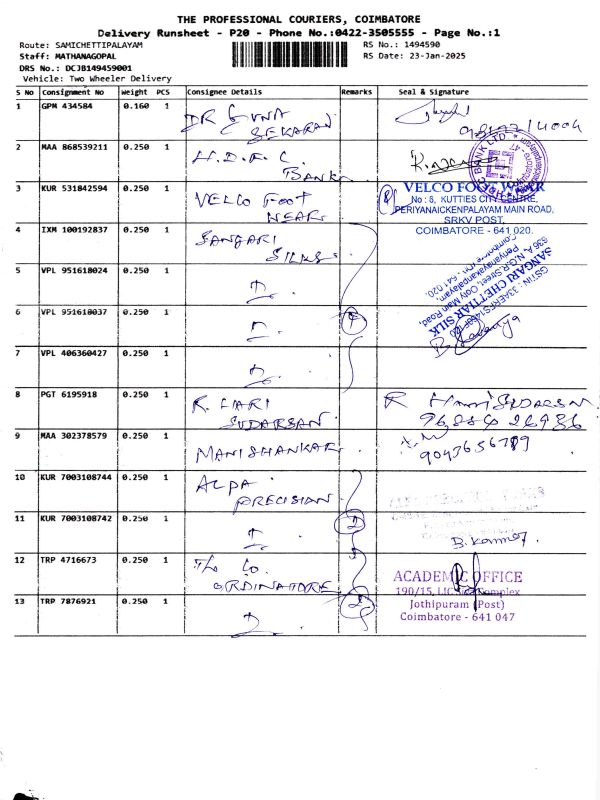 THE PROFESSIONAL COURIERS, COIMBATORE
Delivery Runsheet - P20 - Phone No.:0422-3505555 - Page No.:1
Route: SAMICHETTIPALAYAM
Staff: MATHANAGOPAL
DRS No.: DCJB149459001
Vehicle: Two Wheeler Delivery
RS No.: 1494590
RS Date: 23-Jan-2025
S No Consignment No Weight PCS Consignee Details Remarks Seal & Signature
1 GPM 434584 0.160 1 DR GUNA
SEKARAN
2 MAA 868539211 0.250 1 H.D.F.C.
BANK
HDFC BANK LTD
3 KUR 531842594 0.250 1 VELCO FOOT
WEAR
VELCO FOOT WEAR
No : 6, KUTTIES CITY CENTRE,
PERIYANAICKENPALAYAM MAIN ROAD,
SRKV POST,
COIMBATORE - 641 020.
4 IXM 100192837 0.250 1 SANGARI
SILKS
5 VPL 951618024 0.250 1
SANGARI CHETTIAR SILK
6 VPL 951618037 0.250 1 4
7 VPL 406360427 0.250 1
8 PGT 6195918 0.250 1 R. HARI
SUDARSAN
R HARI SUDARSAN
9 MAA 302378579 0.250 1 MANISHANKAR
9043656789
10 KUR 7003108744 0.250 1 ALPA
PRECISIAN
11 KUR 7003108742 0.250 1 2
12 TRP 4716673 0.250 1 The Co.
ORDINATORE
ACADEMIC OFFICE
190/15, LIC Complex
Jothipuram (Post)
Coimbatore - 641 047
13 TRP 7876921 0.250 1 2